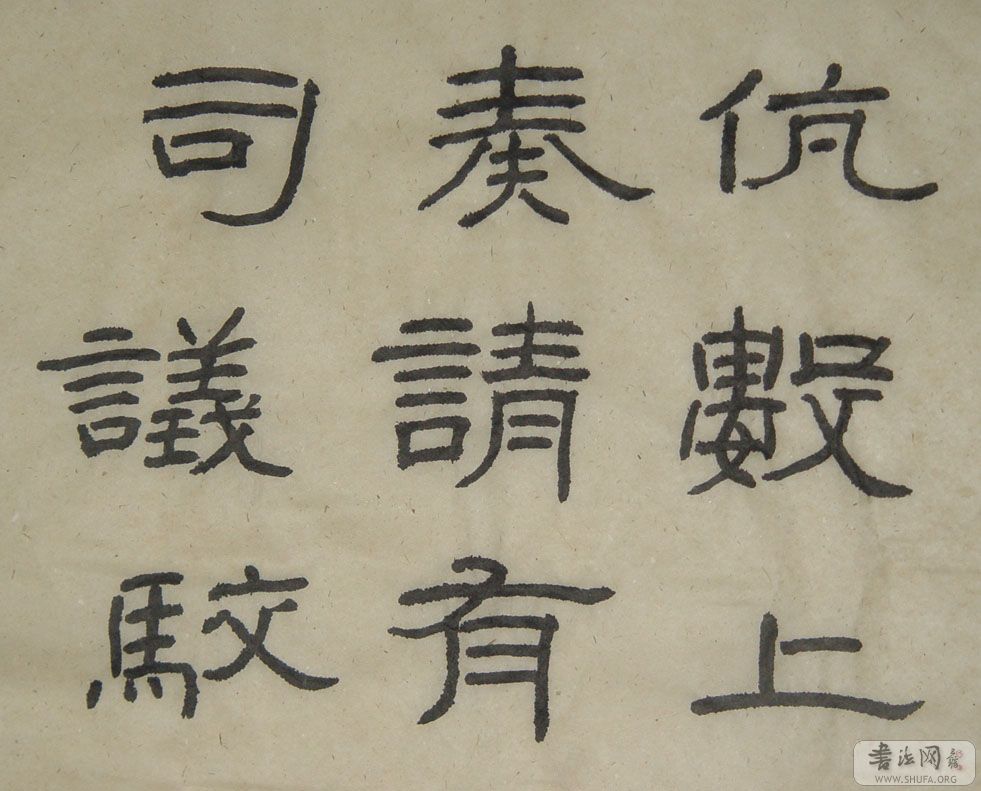 伉數上
奏請有
司議駮
書法网
WWW.SHUFA.ORG